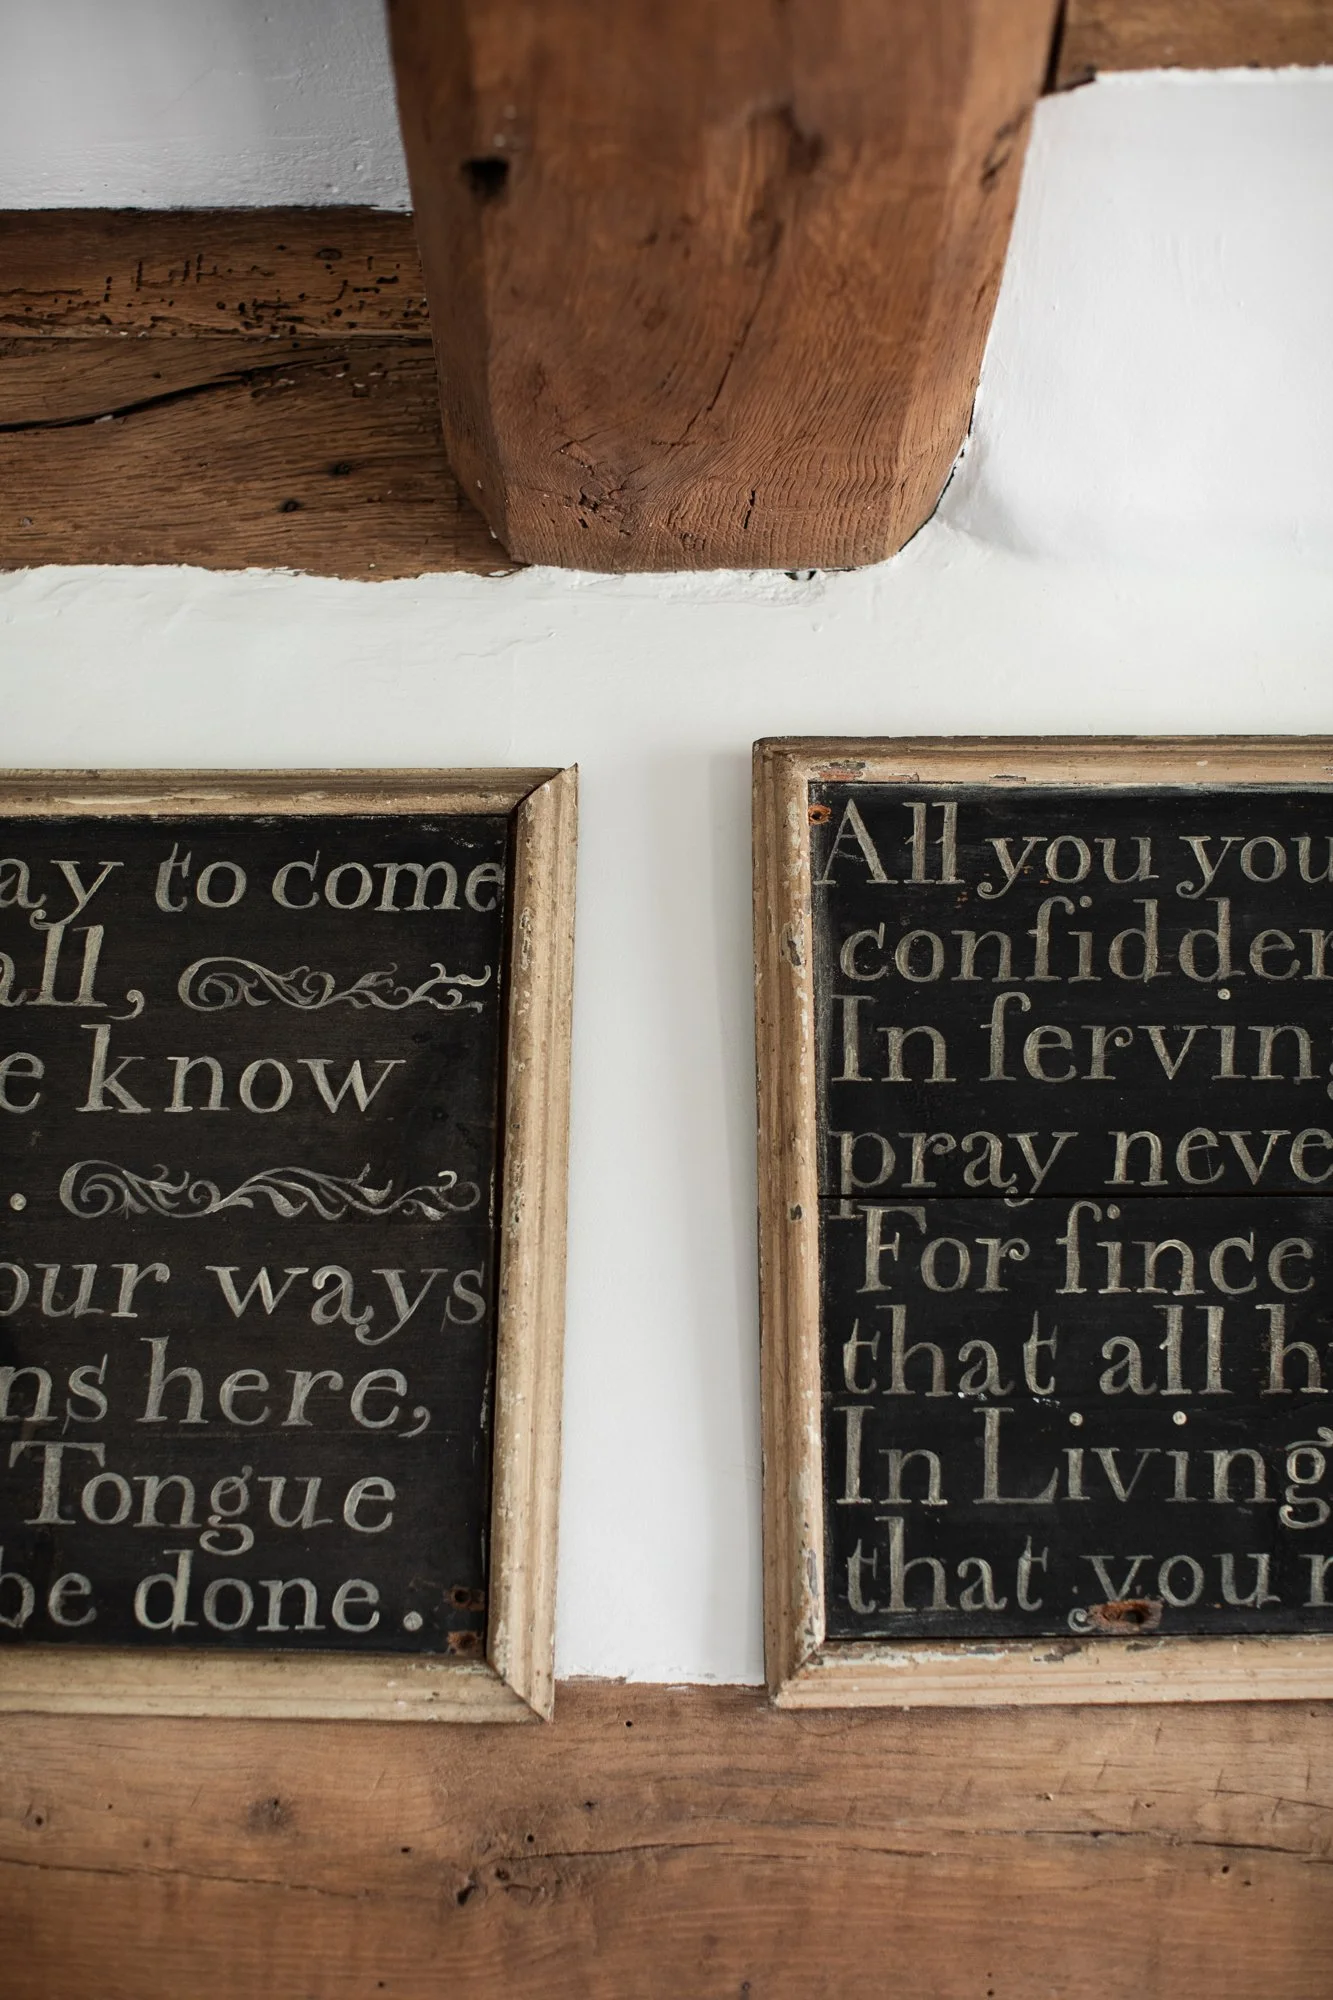 ay to come
all,
e know
.
our ways
ns here,
Tongue
be done.
All you you
conſidder
In ſerving
pray neve
For ſince
that all h
In Living
that you